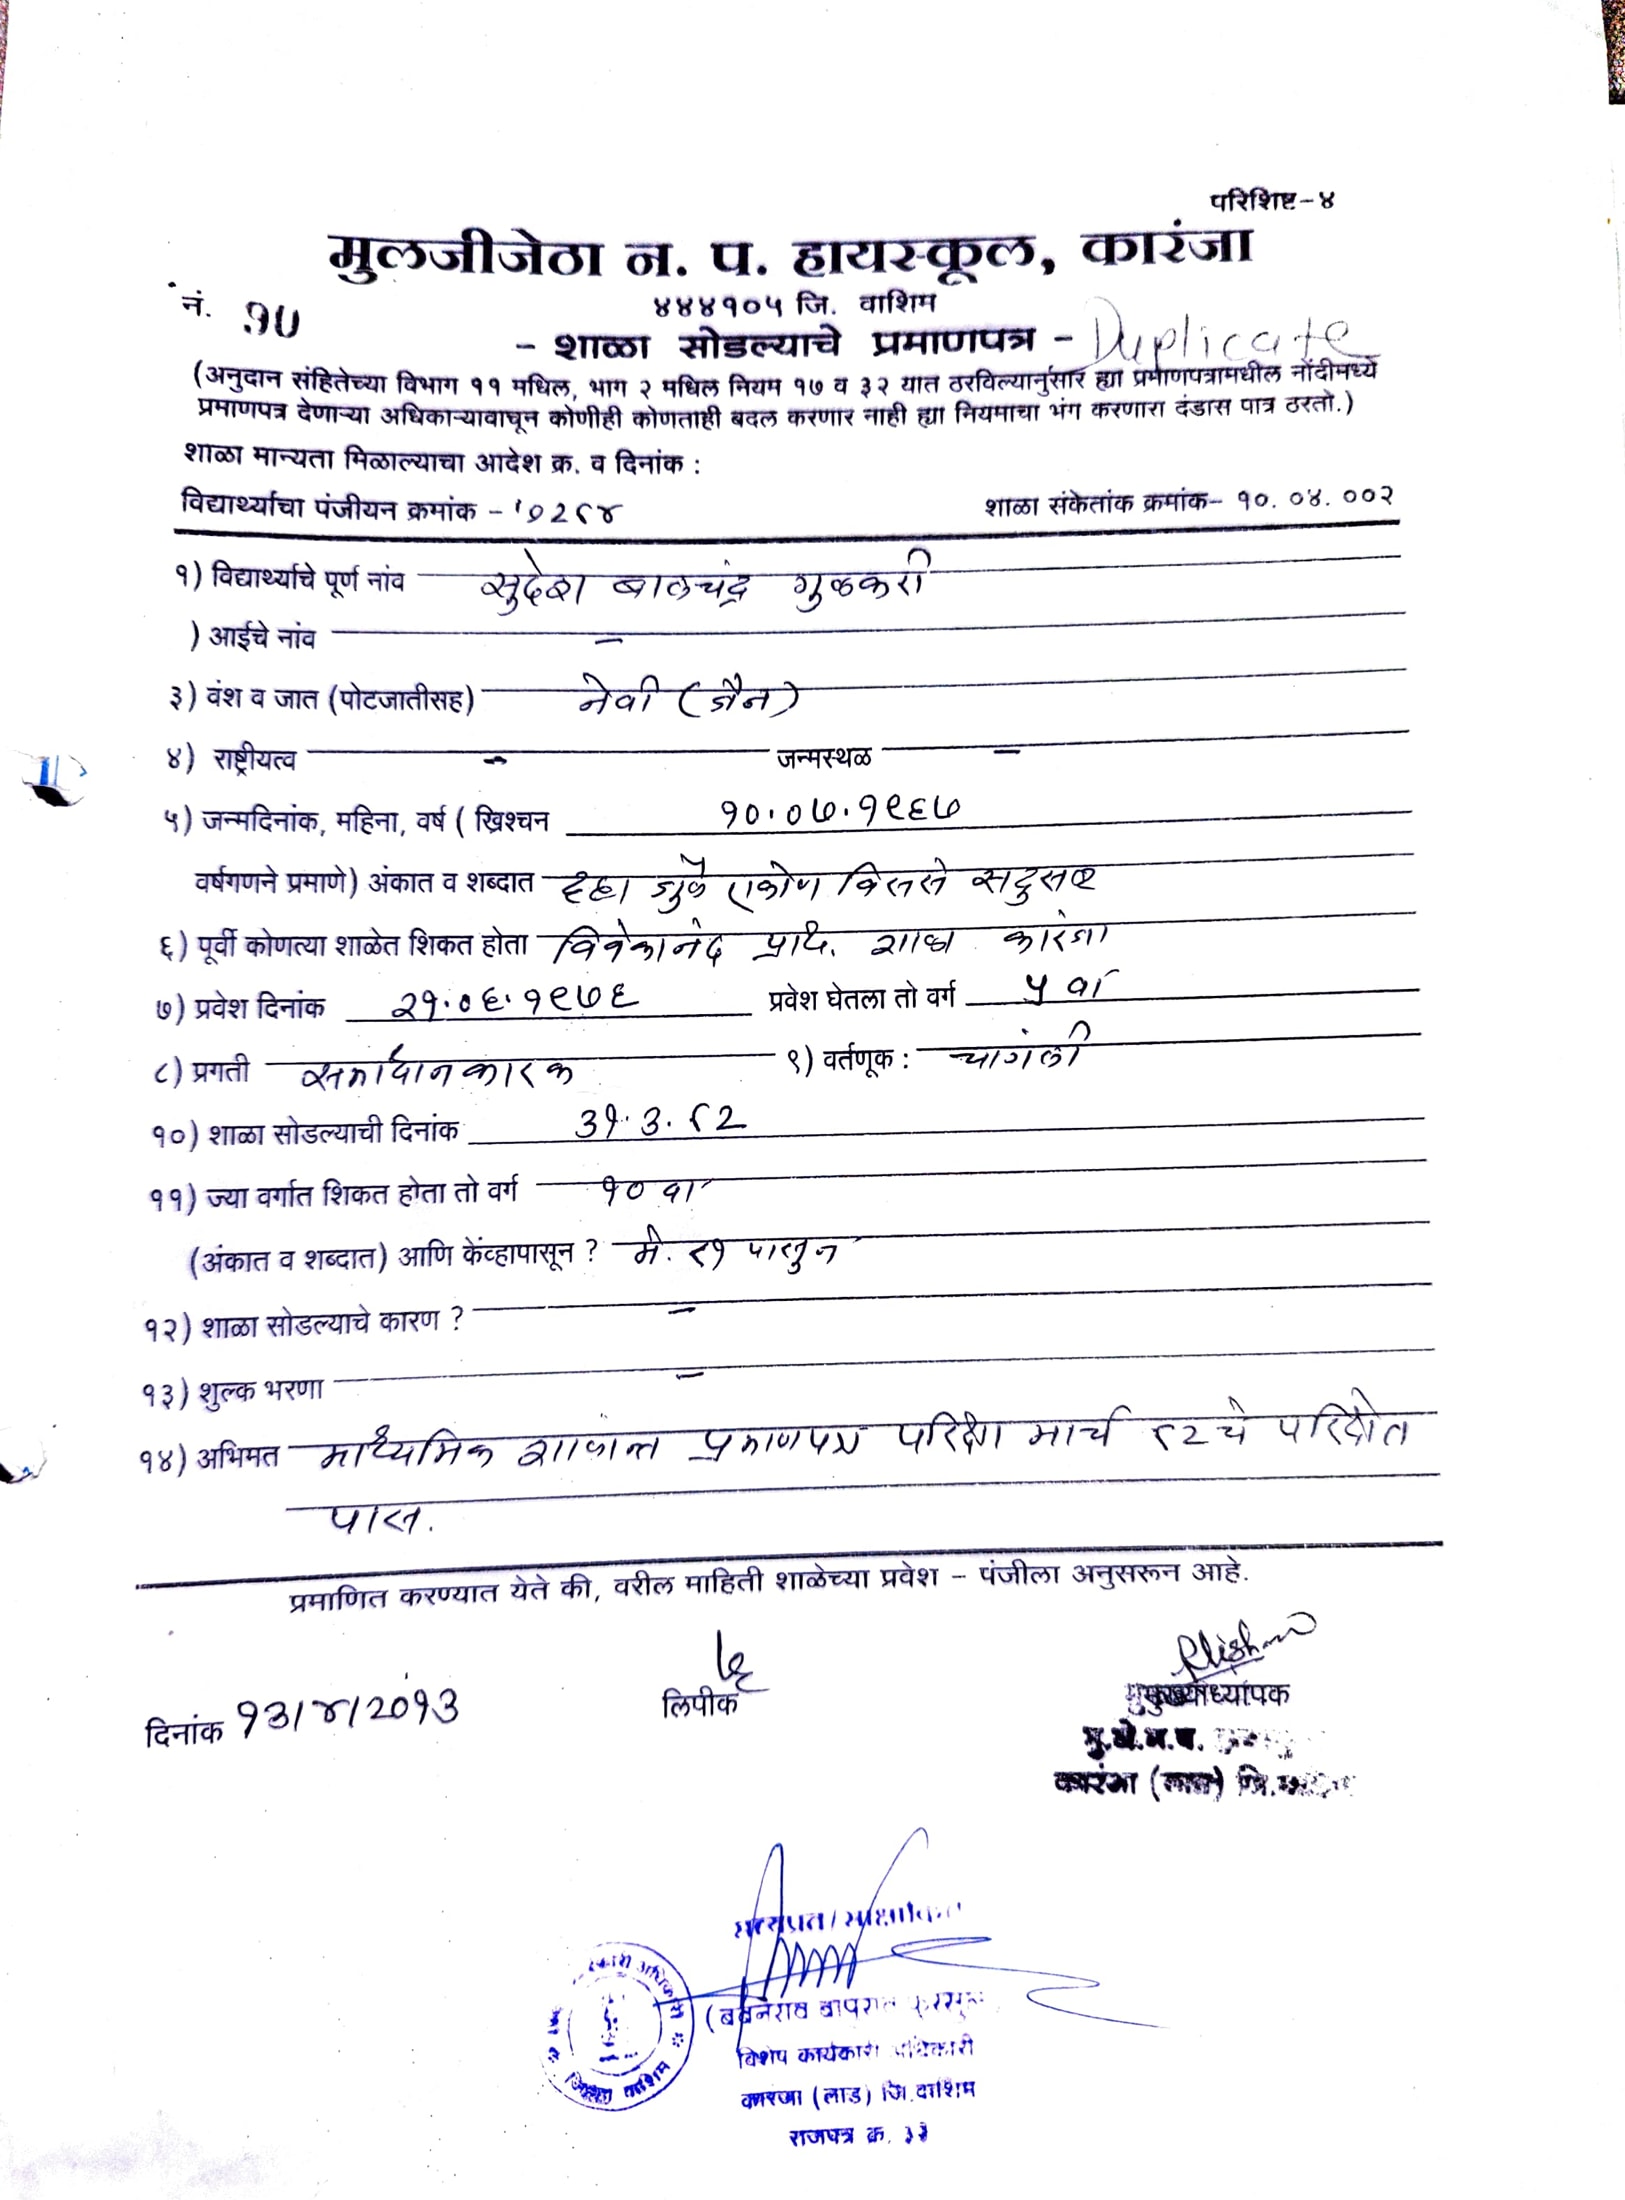 परिशिष्ट-४
मुलजीजेठा न. प. हायस्कूल, कारंजा
४४४१०५ जि. वाशिम
नं. १७
- शाळा सोडल्याचे प्रमाणपत्र - Duplicate
(अनुदान संहितेच्या विभाग ११ मधिल, भाग २ मधिल नियम १७ व ३२ यात ठरविल्यानुसार ह्या प्रमाणपत्रामधील नोंदीमध्ये
प्रमाणपत्र देणाऱ्या अधिकाऱ्यावाचून कोणीही कोणताही बदल करणार नाही ह्या नियमाचा भंग करणारा दंडास पात्र ठरतो.)
शाळा मान्यता मिळाल्याचा आदेश क्र. व दिनांक :
विद्यार्थ्याचा पंजीयन क्रमांक - शाळा संकेतांक क्रमांक- १०. ०४. ००२
१) विद्यार्थ्याचे पूर्ण नांव सुदेश बालचंद्र गुळकरी
) आईचे नांव -
३) वंश व जात (पोटजातीसह) नेवी (जैन)
४) राष्ट्रीयत्व - जन्मस्थळ -
५) जन्मदिनांक, महिना, वर्ष ( ख्रिश्चन १०.०७.१९६७
वर्षगणने प्रमाणे) अंकात व शब्दात दहा जुलै एकोण विससे सदुसष्ट
६) पूर्वी कोणत्या शाळेत शिकत होता विवेकानंद प्राथ. शाळा कारंजा
७) प्रवेश दिनांक २१.०६.१९७६ प्रवेश घेतला तो वर्ग ५ वा
८) प्रगती समाधानकारक ९) वर्तणूक : चागंली
१०) शाळा सोडल्याची दिनांक 3१.3.८2
११) ज्या वर्गात शिकत होता तो वर्ग १० वा
(अंकात व शब्दात) आणि केंव्हापासून ? मे. ८१ पासुन
१२) शाळा सोडल्याचे कारण ? -
१३) शुल्क भरणा -
१४) अभिमत माध्यमिक शालान्त प्रमाणपत्र परिक्षा मार्च ८२चे परिक्षेत
पास.
प्रमाणित करण्यात येते की, वरील माहिती शाळेच्या प्रवेश - पंजीला अनुसरून आहे.
दिनांक १3/४/2०१3 लिपीक मुख्याध्यापक
मु.जे.न.प.
कारंजा (लाड) जि.
सत्यप्रत/साक्षांकित
(बबनराव बापुराव
विशेष कार्यकारी अधिकारी
कारंजा (लाड) जि. वाशिम
राजपत्र क्र. ३३
जिल्हा वाशिम